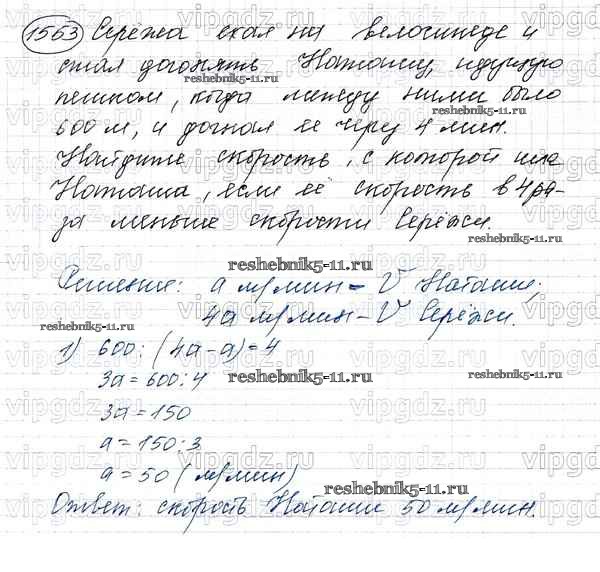 1563 Серёжа ехал на велосипеде и
стал догонять Наташу, идущую
пешком, когда между ними было
600 м, и догнал ее через 4 мин.
Найдите скорость, с которой шла
Наташа, если её скорость в 4 ра-
за меньше скорости Серёжи.
Решение: а м/мин - V Наташи;
4а м/мин - V Серёжи.
1) 600 : (4а-а)=4
3а=600:4
3а=150
а=150:3
а=50 (м/мин)
Ответ: скорость Наташи 50 м/мин.
reshebnik5-11.ru
vipgdz.ru